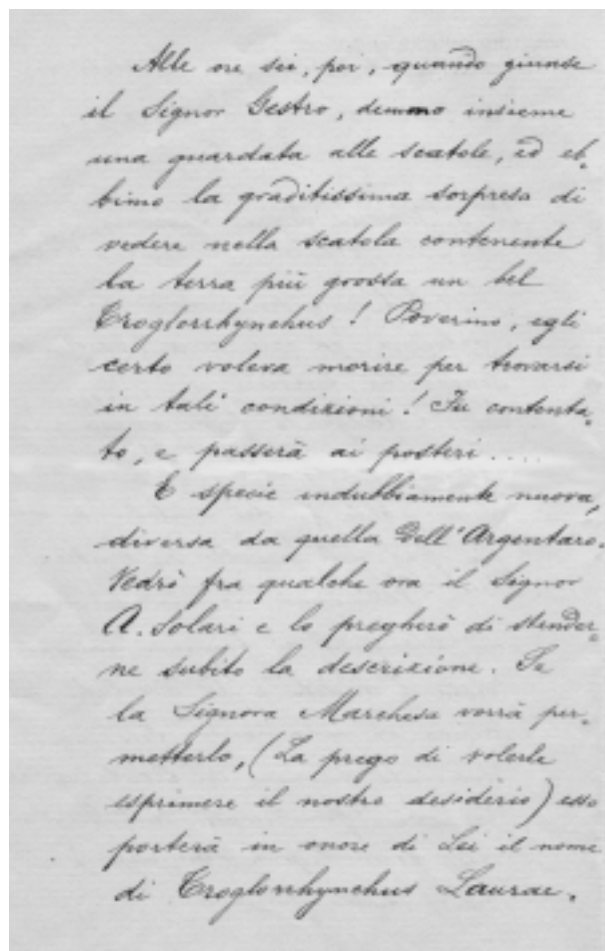 Alle ore sei, poi, quando giunse
il Signor Gestro, demmo insieme
una guardata alle scatole, ed eb-
bimo la graditissima sorpresa di
vedere nella scatola contenente
la terra più grossa un bel
Troglorrhynchus! Poverino, egli
certo voleva morire per trovarsi
in tali condizioni! Fu contenta-
to, e passerà ai posteri....
È specie indubbiamente nuova,
diversa da quella dell'Argentaro.
Vedrò fra qualche ora il Signor
A. Solari e lo pregherò di stender-
ne subito la descrizione. Se
la Signora Marchesa vorrà per-
metterlo, (La prego di volerle
esprimere il nostro desiderio) esso
porterà in onore di Lei il nome
di Troglorrhynchus Laurae.